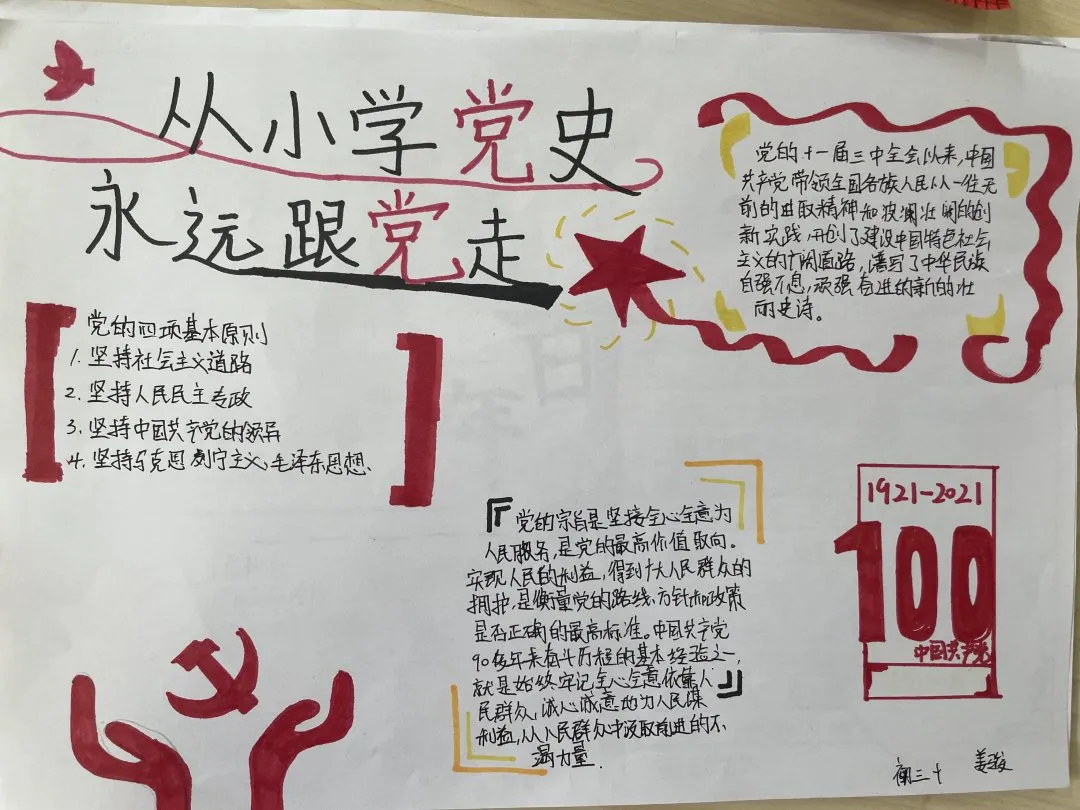 从小学党史
永远跟党走
党的十一届三中全会以来,中国
共产党带领全国各族人民以一往无
前的进取精神和波澜壮阔的创
新实践,开创了建设中国特色社会
主义的广阔道路,谱写了中华民族
自强不息,顽强奋进的新的壮
丽史诗。
党的四项基本原则
1.坚持社会主义道路
2.坚持人民民主专政
3.坚持中国共产党的领导
4.坚持马克思列宁主义、毛泽东思想、
『党的宗旨是坚持全心全意为
人民服务,是党的最高价值取向。
实现人民的利益,得到广大人民群众的
拥护,是衡量党的路线、方针和政策
是否正确的最高标准。中国共产党
90多年来奋斗历程的基本经验之一,
就是始终牢记全心全意依靠人
民群众,诚心诚意地为人民谋
利益,从人民群众中汲取前进的不
竭力量.』
1921-2021
100
中国共产党
三十
姜